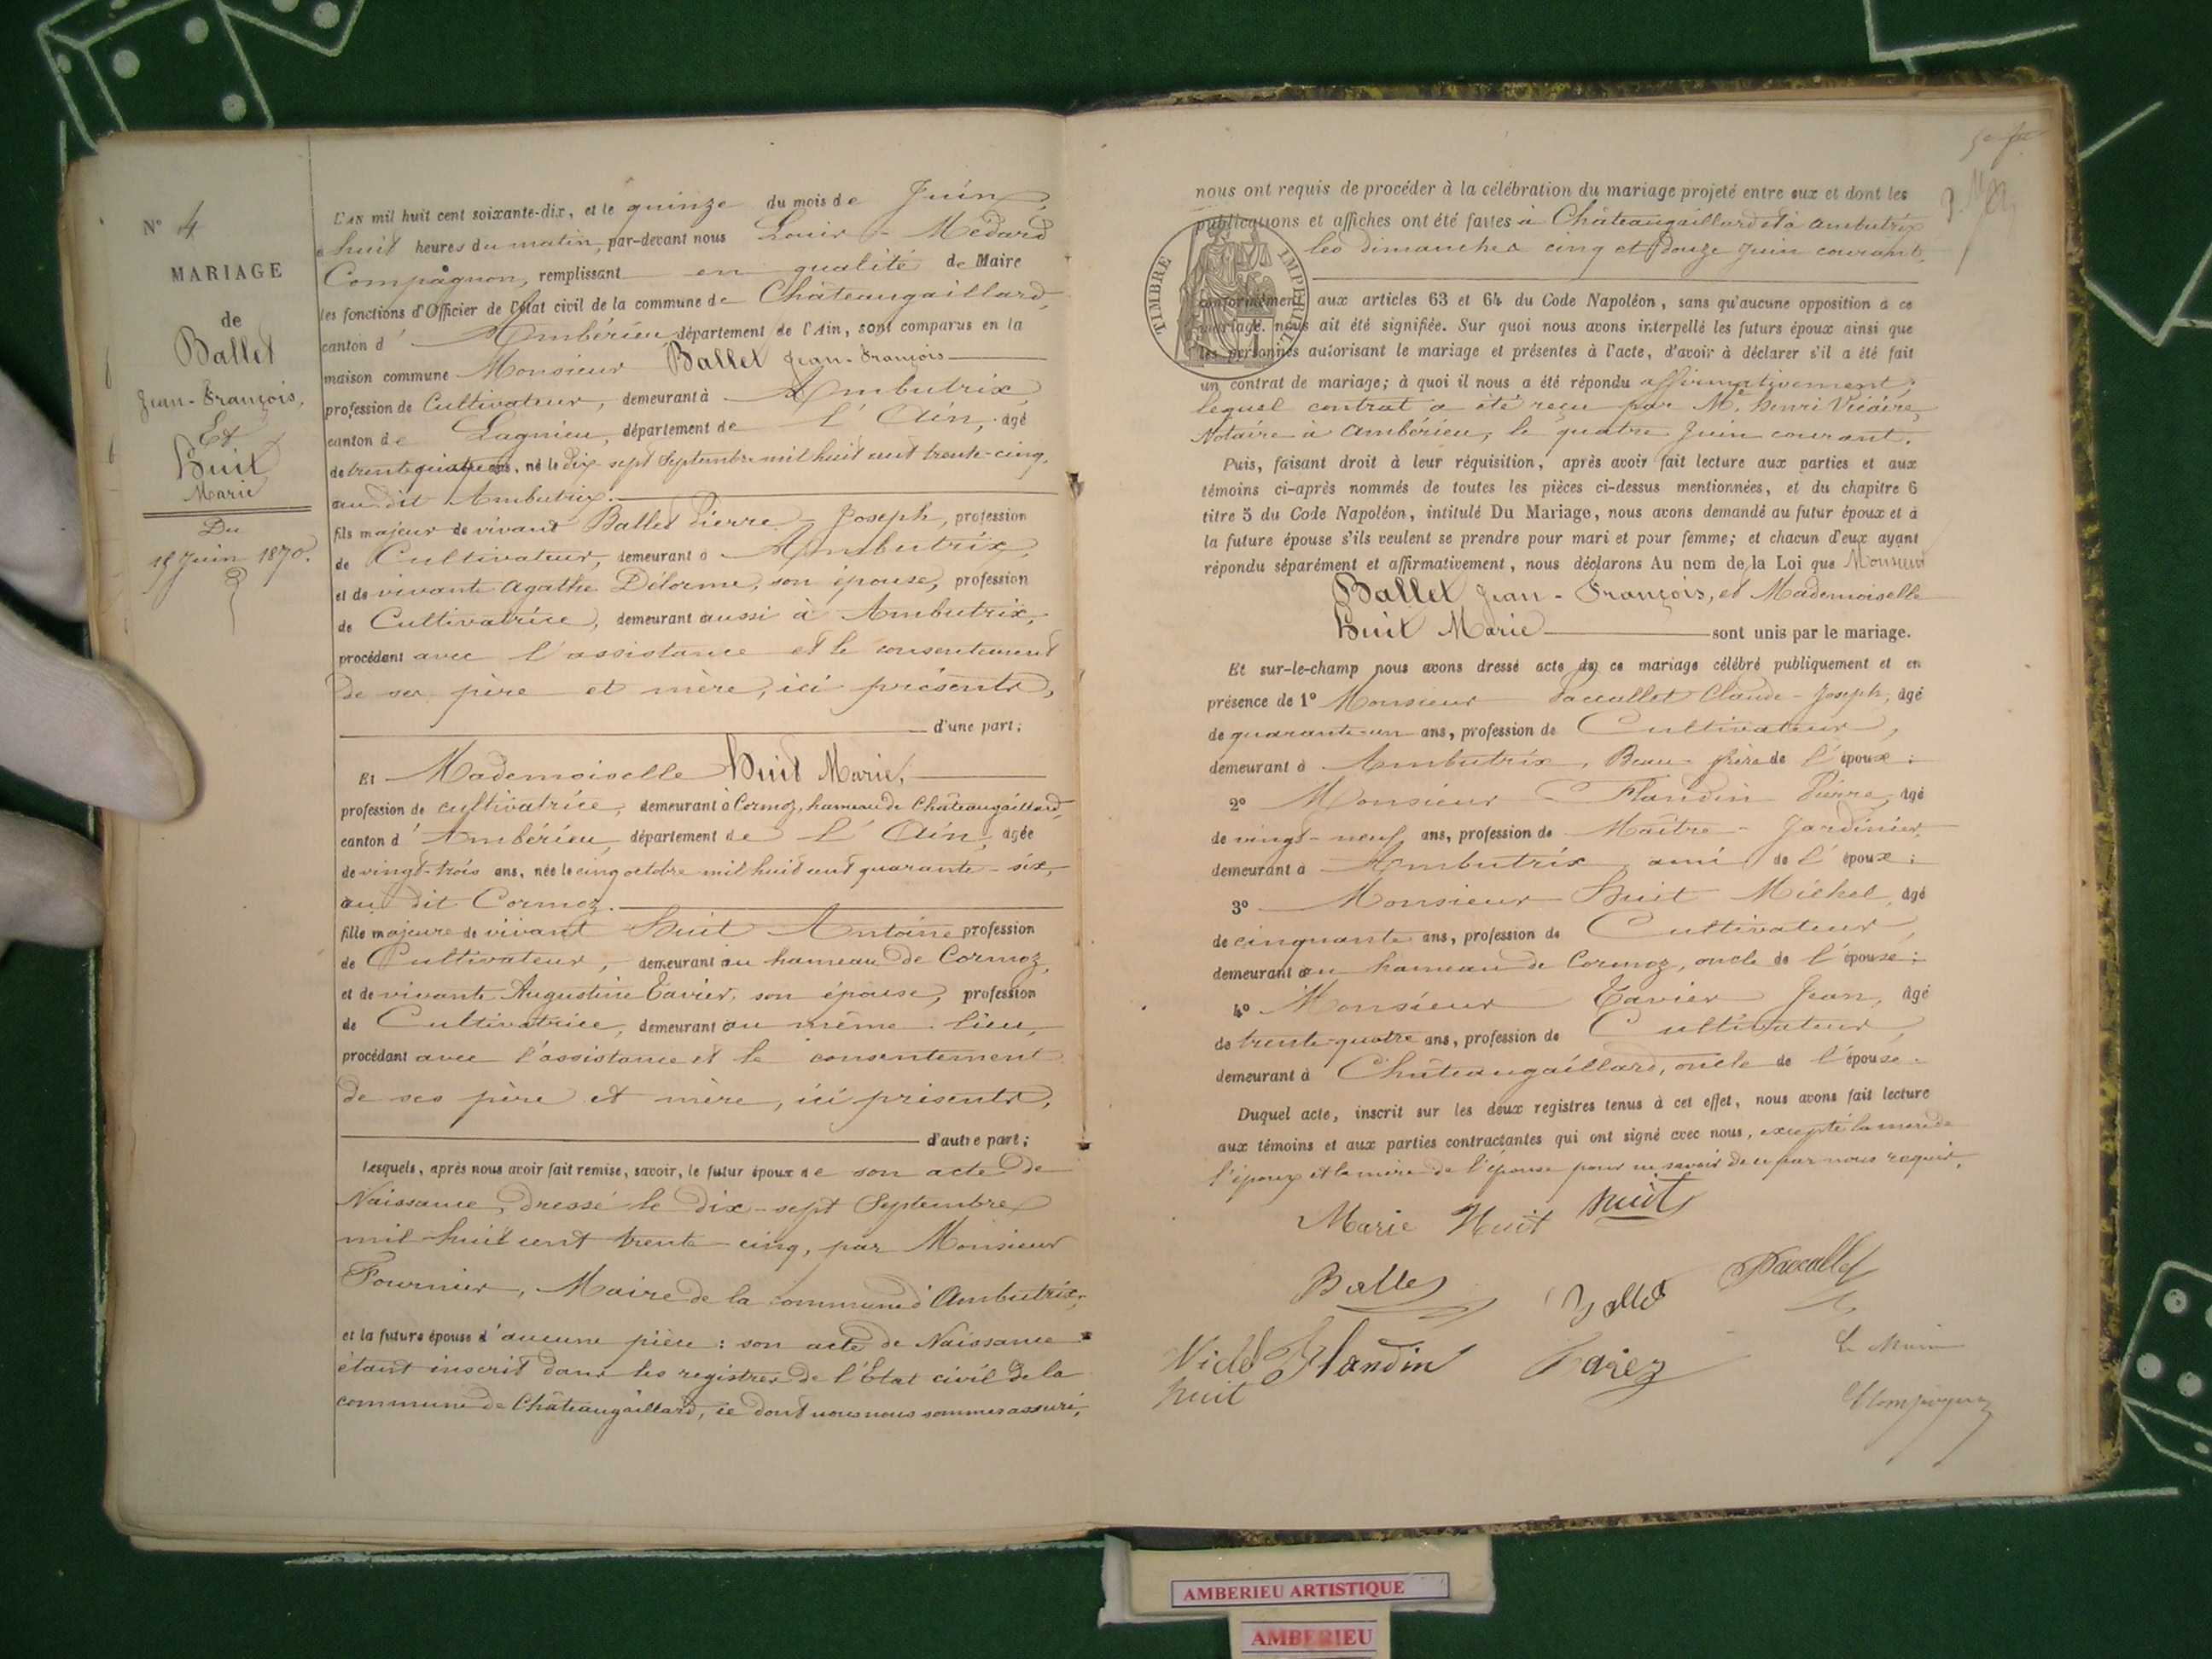 N° 4
MARIAGE
de
Ballet
Jean-François,
Et
Huit
Marie
Du
15 Juin 1870.
L'AN mil huit cent soixante-dix, et le quinze du mois de Juin,
à huit heures du matin, par-devant nous Louis-Médard
Compagnon, remplissant en qualité de Maire
les fonctions d'Officier de l'état civil de la commune de Châteaugaillard,
canton d'Ambérieu département de l'Ain, sont comparus en la
maison commune Monsieur Ballet Jean-François
profession de Cultivateur, demeurant à Ambutrix,
canton de Lagnieu, département de L'Ain, âgé
de trente quatre ans, né le dix-sept Septembre mil huit cent trente-cinq,
au dit Ambutrix.
fils majeur de vivant Ballet Pierre-Joseph, profession
de Cultivateur, demeurant à Ambutrix,
et de vivante Agathe Délorme, son épouse, profession
de Cultivatrice, demeurant aussi à Ambutrix,
procédant avec l'assistance et le consentement
de ses père et mère, ici présents,
d'une part;
Et Mademoiselle Huit Marie,
profession de cultivatrice, demeurant à Cormoz, hameau de Châteaugaillard,
canton d'Ambérieu, département de L'Ain, âgée
de vingt-trois ans, née le cinq octobre mil huit cent quarante-six,
au dit Cormoz.
fille majeure de vivant Huit Antoine profession
de Cultivateur, demeurant au hameau de Cormoz,
et de vivante Augustine Tavier, son épouse, profession
de Cultivatrice, demeurant au même lieu,
procédant avec l'assistance et le consentement
de ses père et mère, ici présents,
d'autre part;
Lesquels, après nous avoir fait remise, savoir, le futur époux de son acte de
Naissance, dressé le dix-sept Septembre
mil huit cent trente-cinq, par Monsieur
Fournier, Maire de la commune d'Ambutrix,
et la future épouse d'aucune pièce : son acte de Naissance
étant inscrit dans les registres de l'Etat civil de la
commune de Châteaugaillard, ce dont nous nous sommes assuré,
nous ont requis de procéder à la célébration du mariage projeté entre eux et dont les
publications et affiches ont été faites à Châteaugaillard et à Ambutrix
les dimanches cinq et douze Juin courant,
TIMBRE IMPERIAL
conformément aux articles 63 et 64 du Code Napoléon, sans qu'aucune opposition à ce
mariage nous ait été signifiée. Sur quoi nous avons interpellé les futurs époux ainsi que
les personnes autorisant le mariage et présentes à l'acte, d'avoir à déclarer s'il a été fait
un contrat de mariage; à quoi il nous a été répondu affirmativement;
lequel contrat a été reçu par Me. Henri Vicaire,
Notaire à Ambérieu, le quatre Juin courant.
Puis, faisant droit à leur réquisition, après avoir fait lecture aux parties et aux
témoins ci-après nommés de toutes les pièces ci-dessus mentionnées, et du chapitre 6
titre 5 du Code Napoléon, intitulé Du Mariage, nous avons demandé au futur époux et à
la future épouse s'ils veulent se prendre pour mari et pour femme; et chacun d'eux ayant
répondu séparément et affirmativement, nous déclarons Au nom de la Loi que Monsieur
Ballet Jean-François, et Mademoiselle
Huit Marie sont unis par le mariage.
Et sur-le-champ nous avons dressé acte de ce mariage célébré publiquement et en
présence de 1° Monsieur Paccallet Claude-Joseph, âgé
de quarante-un ans, profession de Cultivateur,
demeurant à Ambutrix, Beau-frère de l'époux :
2° Monsieur Flandin Pierre, âgé
de vingt-neuf ans, profession de Maître-Jardinier,
demeurant à Ambutrix, ami de l'époux :
3° Monsieur Huit Michel, âgé
de cinquante ans, profession de Cultivateur,
demeurant au hameau de Cormoz, oncle de l'épouse :
4° Monsieur Tavier Jean, âgé
de trente-quatre ans, profession de Cultivateur,
demeurant à Châteaugaillard, oncle de l'épouse.
Duquel acte, inscrit sur les deux registres tenus à cet effet, nous avons fait lecture
aux témoins et aux parties contractantes qui ont signé avec nous, excepté la mère de
l'époux et la mère de l'épouse pour ne savoir de ce par nous requis.
Marie Huit huit
Ballet Ballet Paccallet
Flandin
huit
Le Maire
Compagnon
AMBERIEU ARTISTIQUE
AMBERIEU